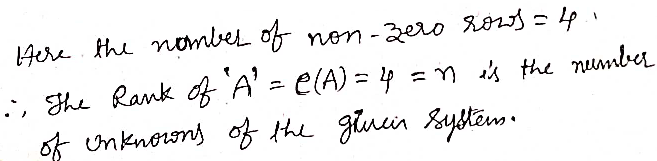 Here the number of non-zero rows = 4.
∴ The Rank of 'A' = ρ(A) = 4 = n is the number
of unknowns of the given system.